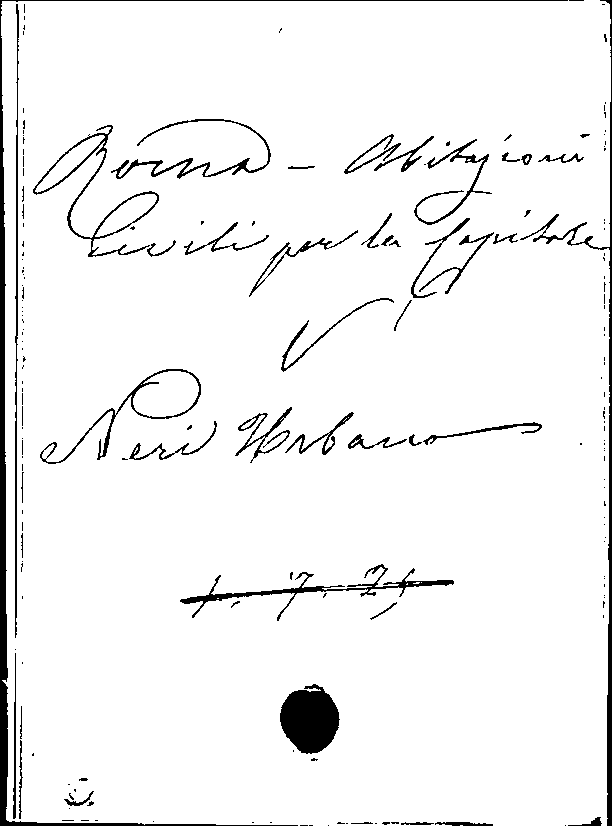 Roma – Abitazioni
Civili per la Capitale
V
Neri Urbano
1. 7. 21